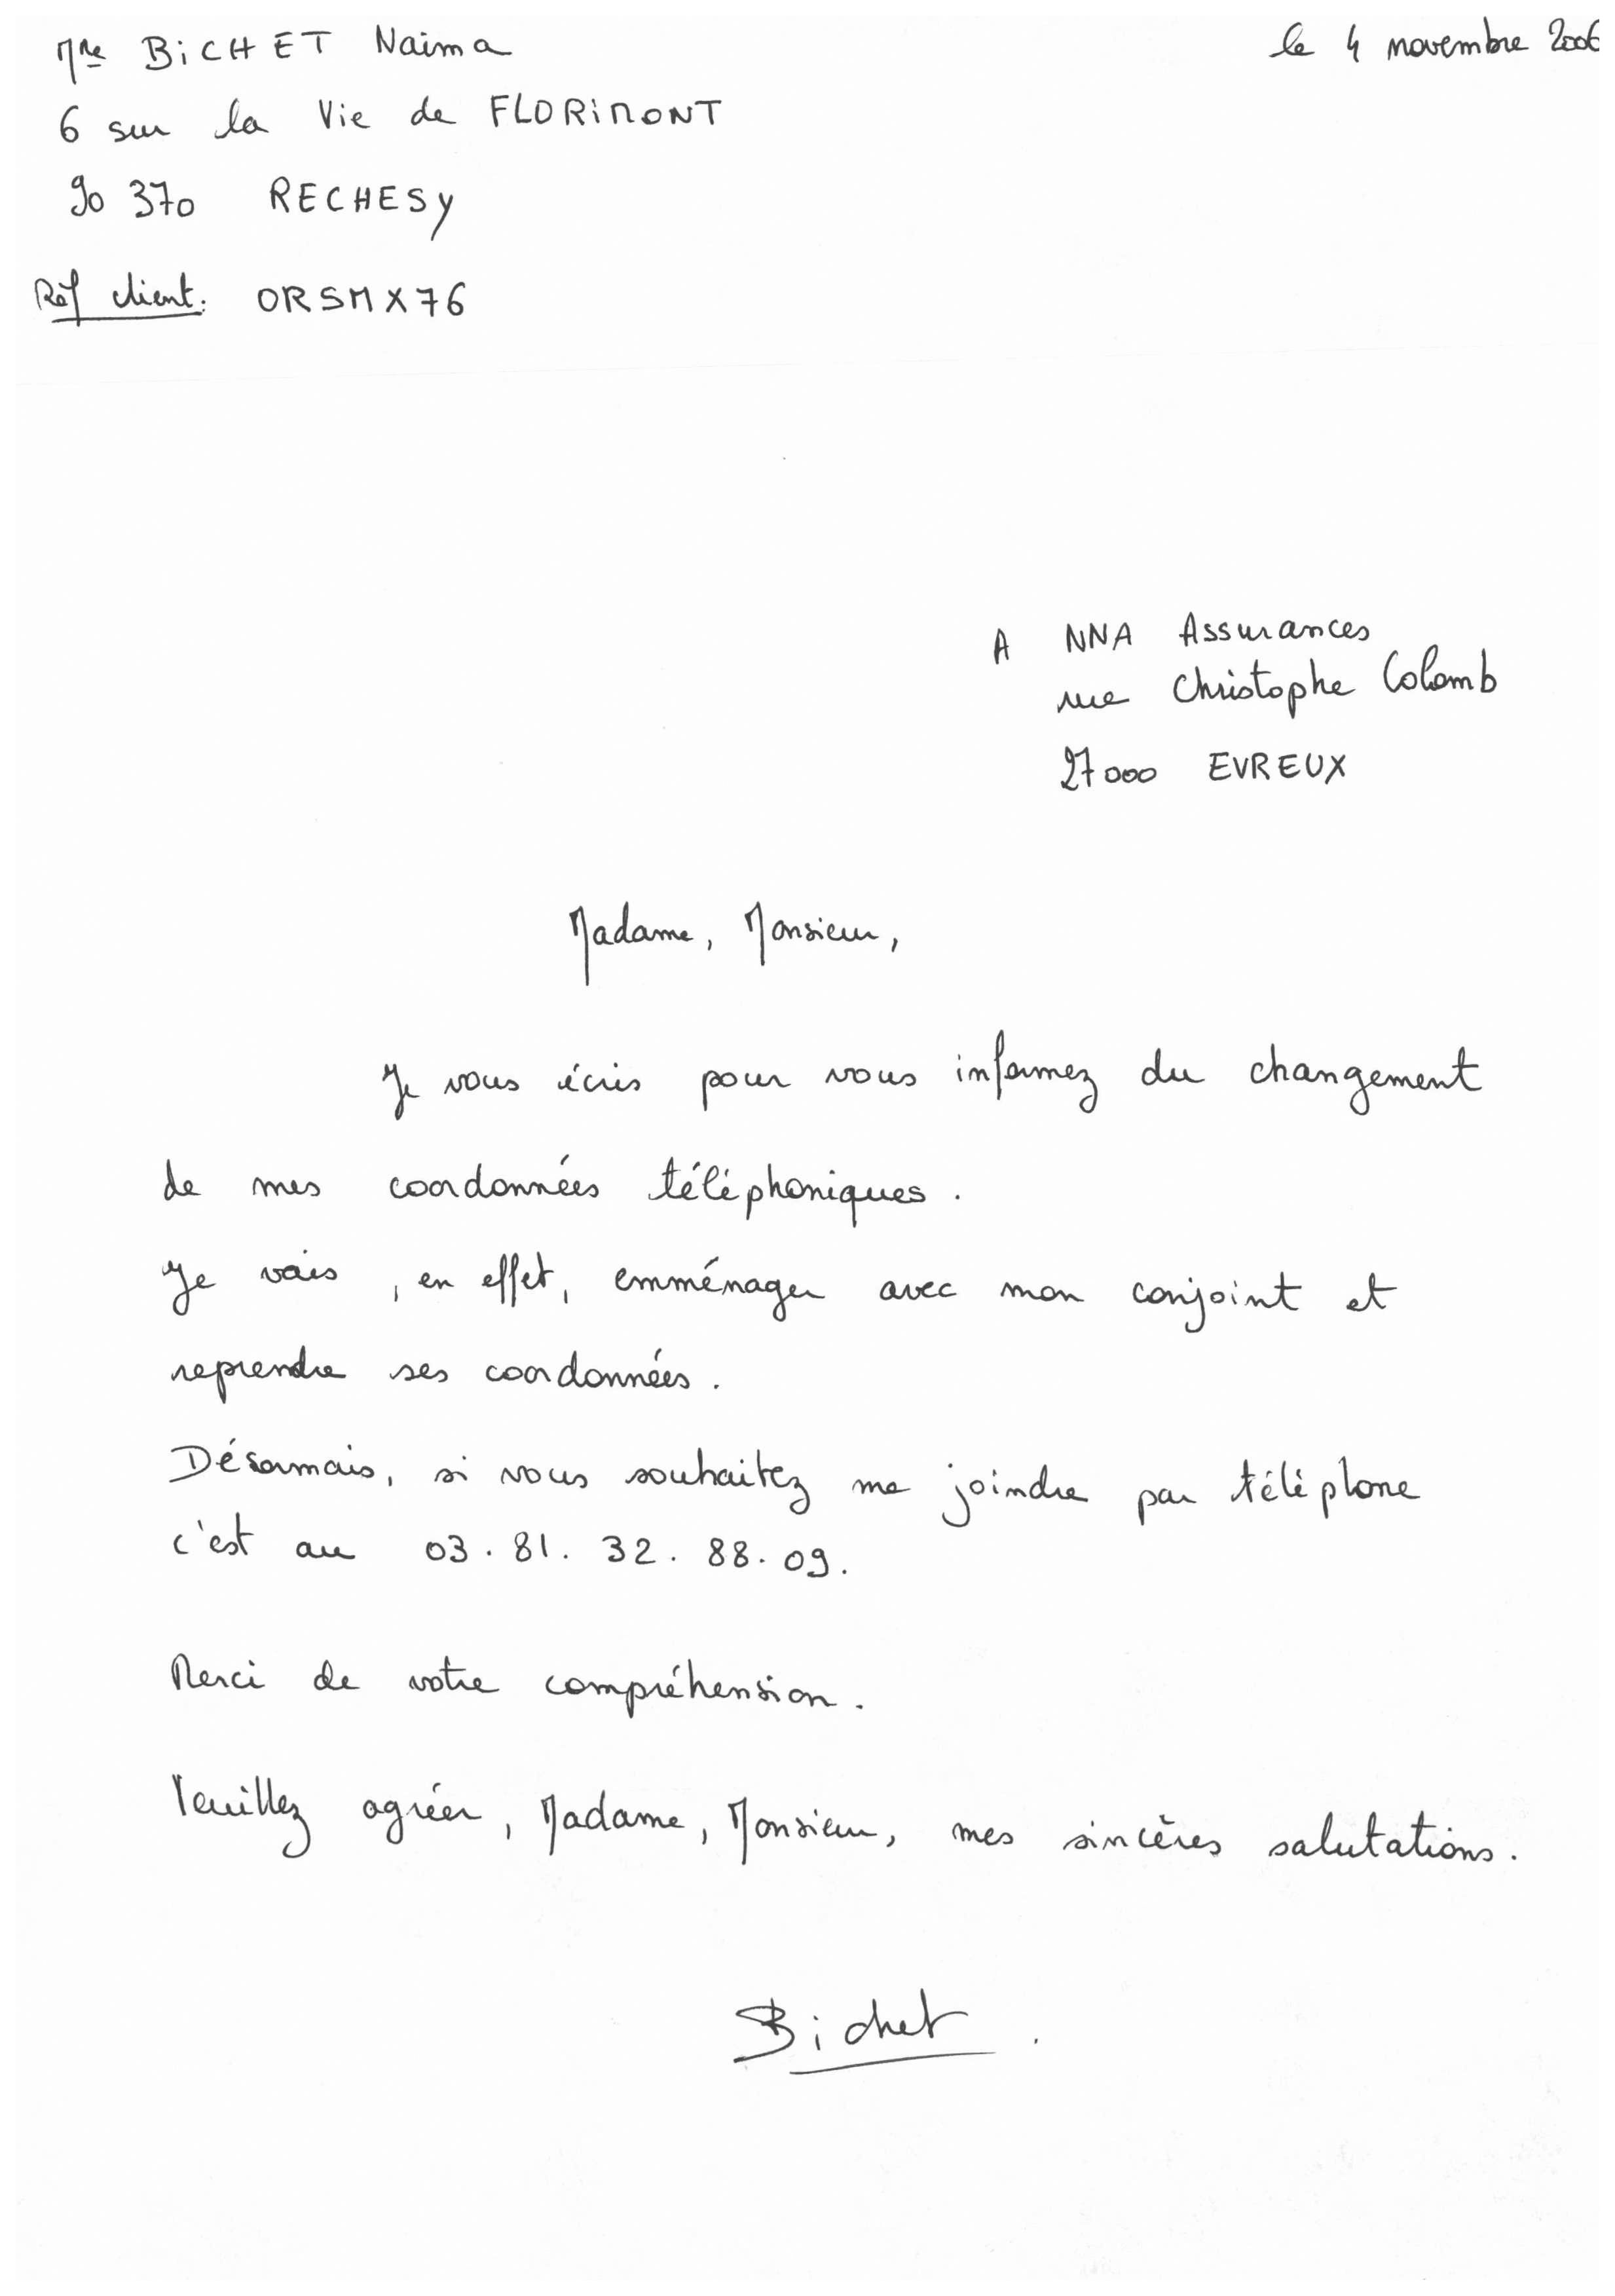 Mme BiCHET Naima
le 4 novembre 2006
6 sur la Vie de FLORiMONT
90 370 RECHESY
Réf client: ORSMX76
A NNA Assurances
rue Christophe Colomb
27000 EVREUX
Madame, Monsieur,
Je vous écris pour vous informez du changement
de mes coordonnées téléphoniques.
Je vais, en effet, emménager avec mon conjoint et
reprendre ses coordonnées.
Désormais, si vous souhaitez me joindre par téléphone
c'est au 03.81.32.88.09.
Merci de votre compréhension.
Veuillez agréer, Madame, Monsieur, mes sincères salutations.
Bichet